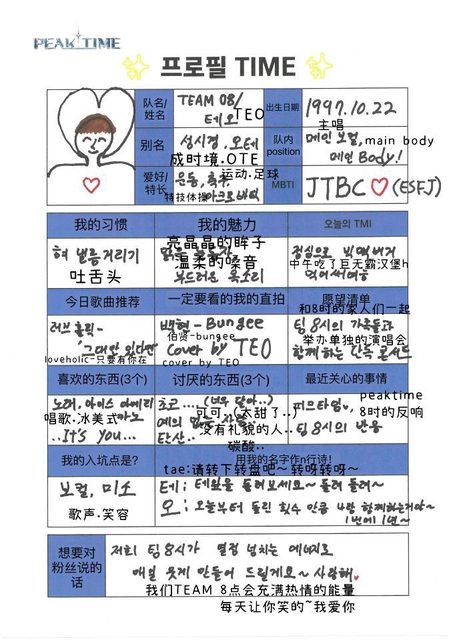 PEAK TIME
✨ 프로필 TIME ✨
队名/
姓名
TEAM 08/
테오
TEO
出生日期
1997.10.22
别名
성시경, 오테
成时境.OTE
队内
position
主唱
메인보컬, main body
메인 Body!
爱好/
特长
운동, 축구,
运动.足球
特技体操
아크로바틱
MBTI
JTBC ♡ (ESFJ)
我的习惯
我的魅力
오늘의 TMI
혀 낼름거리기
吐舌头
亮晶晶的眸子
温柔的嗓音
부드러운 목소리
점심으로 빅맥버거
中午吃了巨无霸汉堡h
먹어써여ㅎ
今日歌曲推荐
一定要看的我的直拍
愿望清单
러브홀릭-
'그대만 있다면
loveholic-只要有你在
백현-Bungee
伯贤-bungee
Cover by TEO
cover by TEO
和8时的家人们一起
팀 8시의 가족들과
举办单独的演唱会
함께하는 단독 콘서트
喜欢的东西(3个)
讨厌的东西(3个)
最近关心的事情
노래, 아이스 아메리
唱歌.冰美式
카노
..It's you...
초코....(너무 달아..)
可可.(太甜了..)
예의 없는 사람..
没有礼貌的人..
탄산..
碳酸..
peaktime
피크타임,
8时的反响
팀 8시의 반응
我的入坑点是?
用我的名字作n行诗!
보컬, 미소
歌声.笑容
tae:请转下转盘吧~ 转呀转呀~
테: 테잎을 돌려보세요~ 돌려 돌려~
오: 오늘부터 돌린 횟수 만큼 나랑 함께하는거야~
1번에 1년~
想要对
粉丝说的
话
저희 팀 8시가 열정 넘치는 에너지로
매일 웃게 만들어 드릴게요~ 사랑해♥
我们TEAM 8点会充满热情的能量
每天让你笑的~我爱你